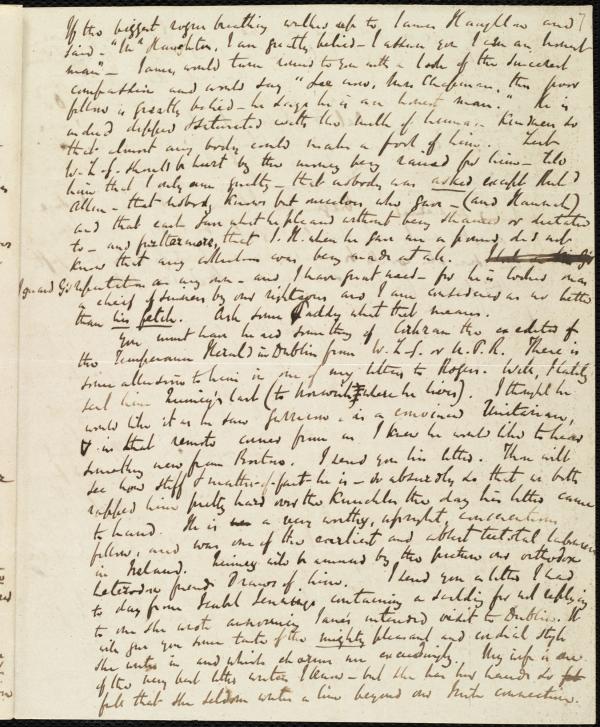 If the biggest rogue breathing walked up to James Haughton and 7
said - "Mr Haughton, I am greatly belied - I assure you I am an honest
man" - James would turn round to you with a look of the sincerest
compassion and would say "See now, Mrs Chapman, this poor
fellow is greatly belied - he says he is an honest man." He is
indeed dipped & saturated with the milk of human kindness so
that almost any body could make a fool of him. Lest
W. L. G. should be hurt by the money being raised for him - tell
him that I only am guilty - that nobody was asked except Richd
Allen - that nobody knows but ourselves who gave - (and Hannah)
and that each gave what he pleased without being shamed or dictated
to - and furthermore, that J. H. when he gave me a pound, did not
know that any collection was being made at all.
I guard G's reputation as my own - and I have great need - for he is looked on as
a chief of sinners by our righteous and I am considered as no better
than his fetch. Ask some Paddy what that means.
You must have heard something of Cochran the ex editor of
the Temperance Herald in Dublin from W. L. G. or N. P. R. There is
some allusion to him in one of my letters to Rogers. Well, I lately
sent him Quincy's last (to where he lives). I thought he
would like it as he saw Garrison, is a convinced Unitarian,
& in that remote corner from us I knew he would like to hear
something new from Boston. I send you his letter. Thou wilt
see how stiff & matter-of-fact he is - or absurdly so that we both
rapped him pretty hard over the knuckles the day his letter came
to hand. He is a very worthy, upright, conscientious
fellow, and was one of the earliest and ablest teetotal labourers
in Ireland. Quincy will be amused by the picture our orthodox
heterodox friend draws of him. I send you a letter I had
to day from Isabel Jennings containing a scolding for not replying
to one she wrote announcing Jane's intended visit to Dublin. It
will give you some taste of the mighty pleasant and cordial style
she writes in and which charms me exceedingly. My wife is one
of the very best letter writers I know - but she has her hands so
full that she seldom writes a line beyond our Irish connection.